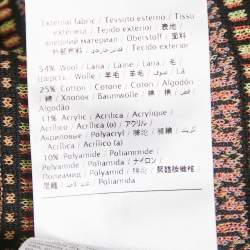 External fabric / Tessuto esterno / Tissu
extérieur / Tejido exterior / 表地 /
внешний материал / Oberstoff / 面料
外部布料 / قماش خارجي / Tecido exterior
54% Wool / Lana / Laine / Lana / 毛 /
Шерсть / Wolle / 羊毛 / 羊毛 / صوف / Lã
25% Cotton / Cotone / Coton / Algodón
/ 綿 / Хлопок / Baumwolle / 棉 / 棉 / قطن /
Algodão
11% Acrylic / Acrilica / Acrylique /
Acrílico / Acrilica (o) / アクリル /
Акриловые / Polyacryl / 腈纶 /
Acrílica / Acrílico (a)
10% Polyamide / Poliammide /
Polyamide / Poliamida / ナイロン /
Полиамид / Polyamid / 锦纶 / 聚醯胺纖維
/ Poliamida